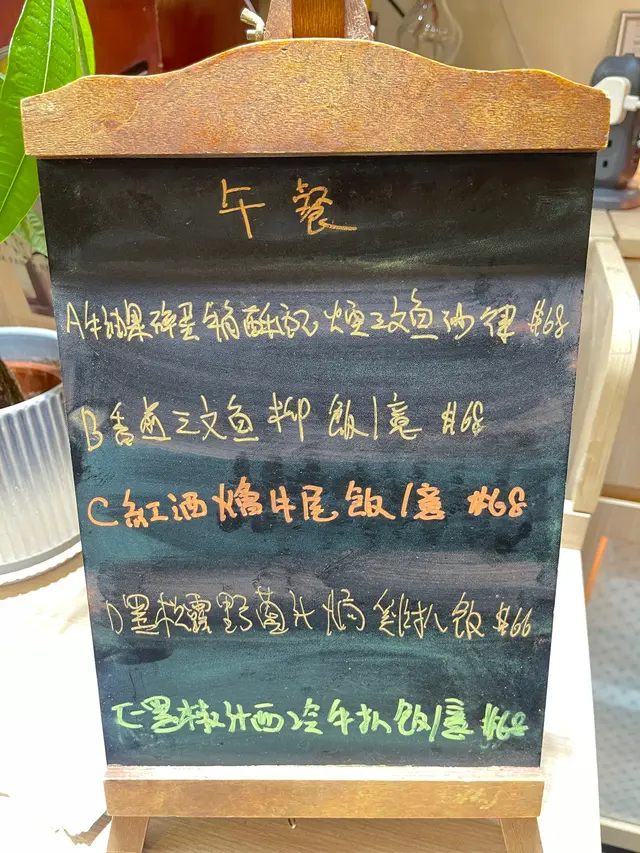 午餐
A牛油果碎蛋錫酥配煙三文魚沙律 $68
B香煎三文魚柳飯/意 $68
C紅酒燴牛尾飯/意 $68
D黑松露野菌汁焗雞扒飯 $66
E黑椒汁西冷牛扒飯/意 $68